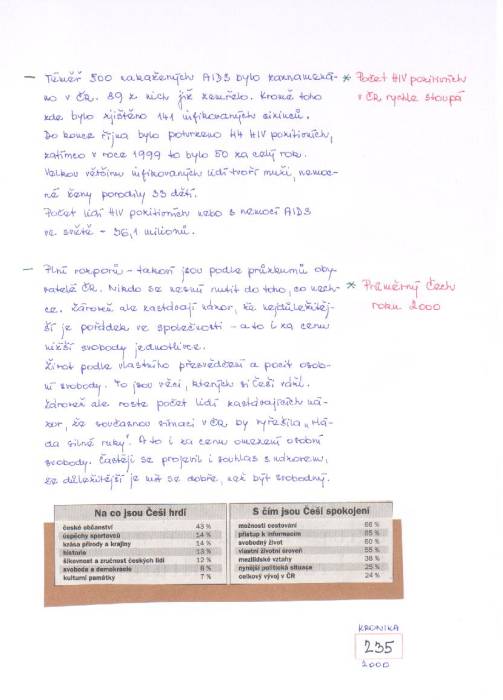 — Téměř 500 nakažených AIDS bylo zaznamená-
no v ČR. 89 z nich již zemřelo. Kromě toho
zde bylo zjištěno 141 infikovaných cizinců.
Do konce října bylo potvrzeno 44 HIV pozitivních,
zatímco v roce 1999 to bylo 50 za celý rok.
Velkou většinu infikovaných lidí tvoří muži, nemoc-
né ženy porodily 33 dětí.
Počet lidí HIV pozitivních nebo s nemocí AIDS
ve světě - 36,1 milionů.
* Počet HIV pozitivních
v ČR rychle stoupá
— Plni rozporů - takoví jsou podle průzkumů oby-
vatelé ČR. Nikdo se nesmí nutit do toho, co nech-
ce. Zároveň ale zastávají názor, že nejdůležitěj-
ší je pořádek ve společnosti - a to i za cenu
nižší svobody jednotlivce.
Život podle vlastního přesvědčení a pocit osob-
ní svobody. To jsou věci, kterých si Češi váží.
Zároveň ale roste počet lidí zastávajících ná-
zor, že současnou situaci v ČR by vyřešila "vlá-
da silné ruky". A to i za cenu omezení osobní
svobody. Častěji se projevil i souhlas s názorem,
že důležitější je mít se dobře, než být svobodný.
* Průměrný Čech
roku 2000
Na co jsou Češi hrdí
české občanství 43 %
úspěchy sportovců 14 %
krása přírody a krajiny 14 %
historie 13 %
šikovnost a zručnost českých lidí 12 %
svoboda a demokracie 8 %
kulturní památky 7 %
S čím jsou Češi spokojení
možnosti cestování 66 %
přístup k informacím 65 %
svobodný život 60 %
vlastní životní úroveň 55 %
mezilidské vztahy 38 %
nynější politická situace 25 %
celkový vývoj v ČR 24 %
KRONIKA
235
2000